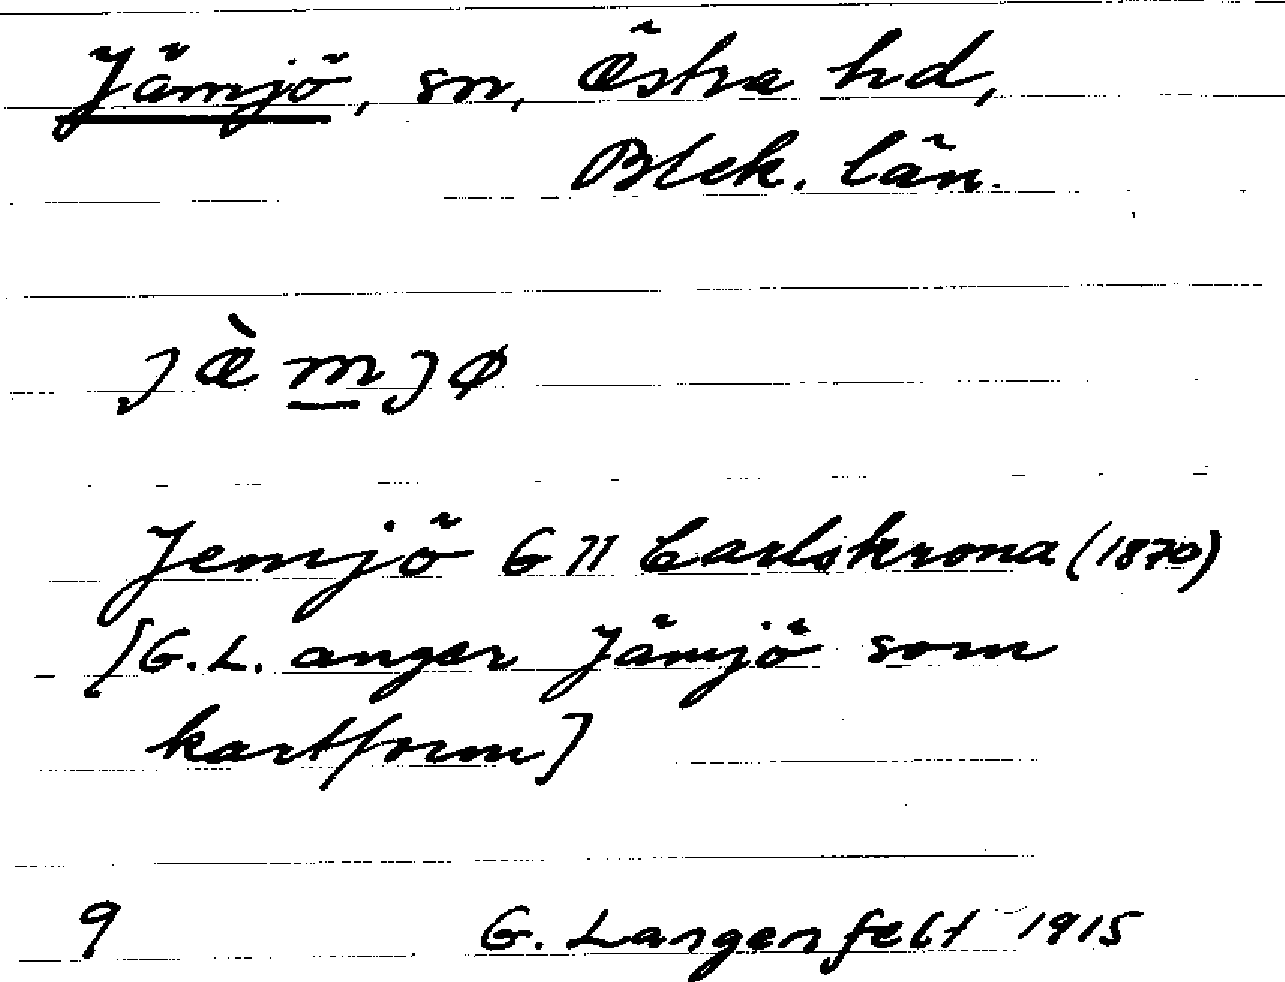 Jämjö, sn, Östra hd,
Blek. län.
jæ̀mjø
Jemjö G II Carlskrona (1870)
[G.L. anger Jämjö som
kartform]
9 G. Langenfelt 1915